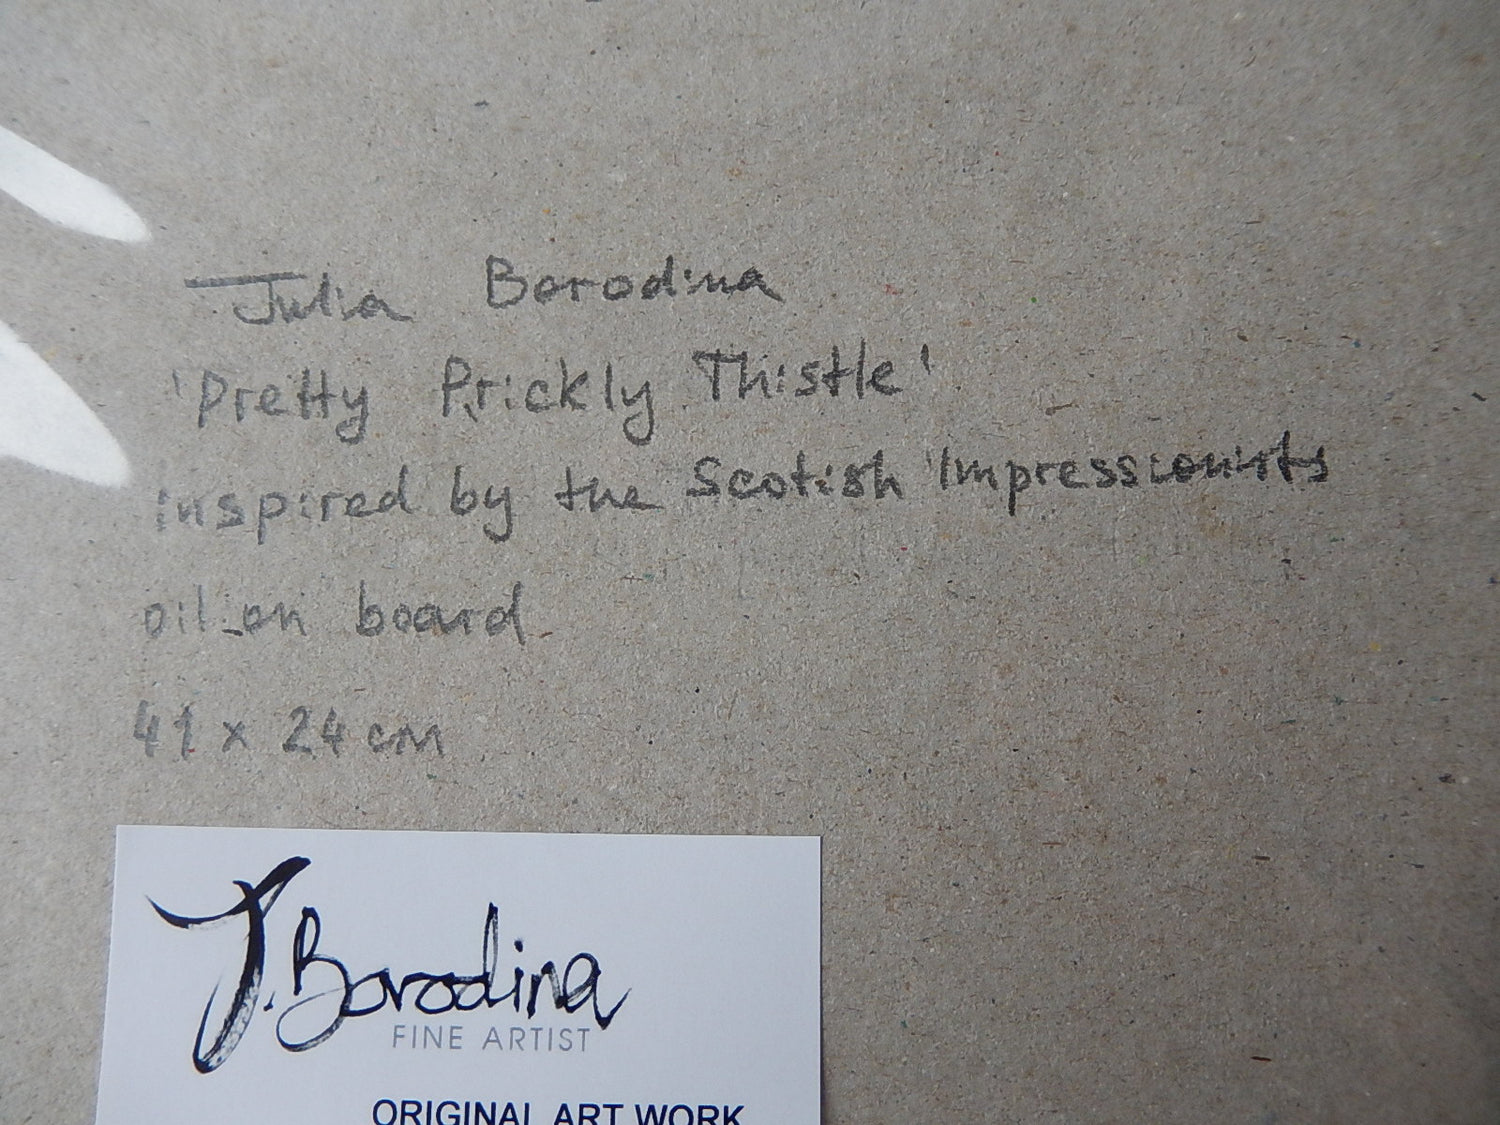 Julia Borodina
'Pretty Prickly Thistle'
inspired by the Scotish Impressionists
oil on board
41 x 24 cm
J. Borodina
FINE ARTIST
ORIGINAL ART WORK